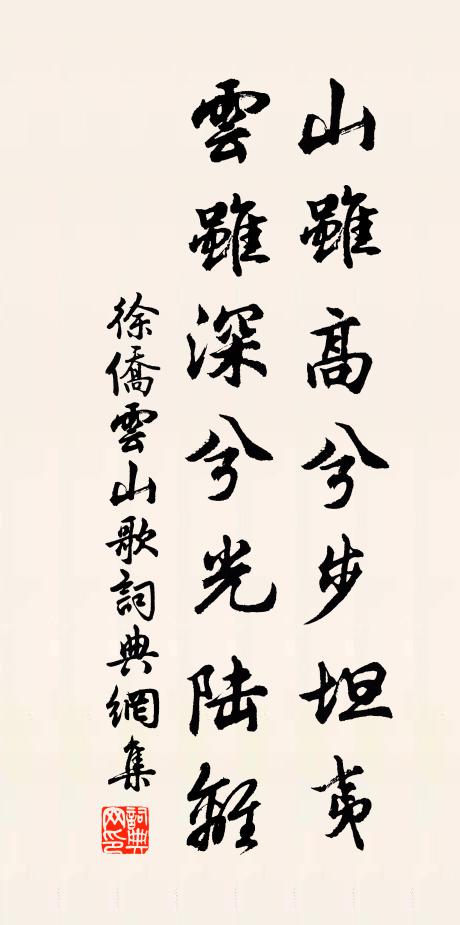 山雖高兮步坦夷
雲雖深兮光陆離
徐僑雲山歌詞典網集
詞典網印